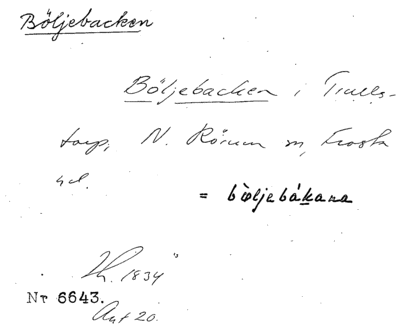 Böljebacken
Böljebacken i Trulls-
torp, N. Rörum sn, Frosta
hd.
= bòljebákana
1834
Nr 6643.
Ant 20.